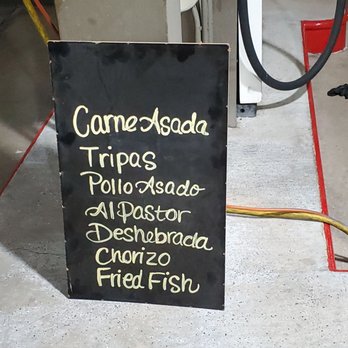 Carne Asada
Tripas
Pollo Asado
Al Pastor
Deshebrada
Chorizo
Fried Fish